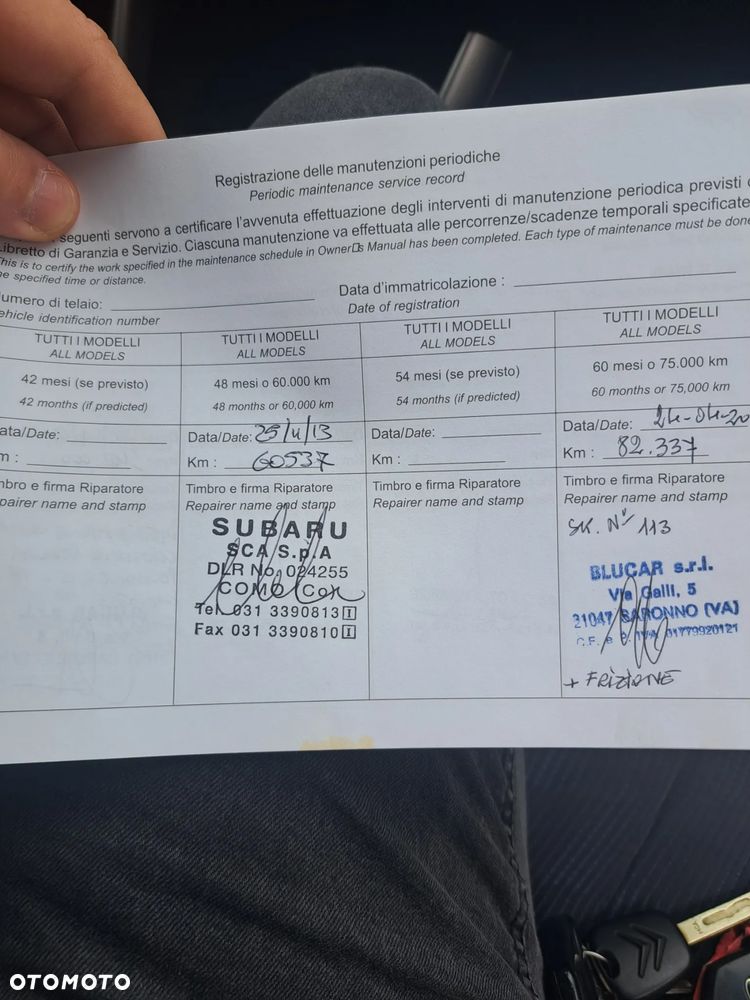 Registrazione delle manutenzioni periodiche
Periodic maintenance service record
seguenti servono a certificare l'avvenuta effettuazione degli interventi di manutenzione periodica previsti
Libretto di Garanzia e Servizio. Ciascuna manutenzione va effettuata alle percorrenze/scadenze temporali specificate
This is to certify the work specified in the maintenance schedule in Owner□s Manual has been completed. Each type of maintenance must be done
he specified time or distance.
umero di telaio:
Data d'immatricolazione :
ehicle identification number
Date of registration
TUTTI I MODELLI
ALL MODELS
TUTTI I MODELLI
ALL MODELS
TUTTI I MODELLI
ALL MODELS
TUTTI I MODELLI
ALL MODELS
42 mesi (se previsto)
42 months (if predicted)
48 mesi o 60.000 km
48 months or 60,000 km
54 mesi (se previsto)
54 months (if predicted)
60 mesi o 75.000 km
60 months or 75,000 km
ata/Date:
m :
Data/Date: 25/11/13
Km : 60537
Data/Date:
Km :
Data/Date:
Km : 82.337
mbro e firma Riparatore
epairer name and stamp
Timbro e firma Riparatore
Repairer name and stamp
SUBARU
SCA S.p.A
DLR No. 024255
COMO
Tel 031 3390813
Fax 031 3390810
Timbro e firma Riparatore
Repairer name and stamp
Timbro e firma Riparatore
Repairer name and stamp
SK. N° 113
BLUCAR s.r.l.
Via Galli, 5
21047 SARONNO (VA)
01779920121
+ FRIZIONE
OTOMOTO